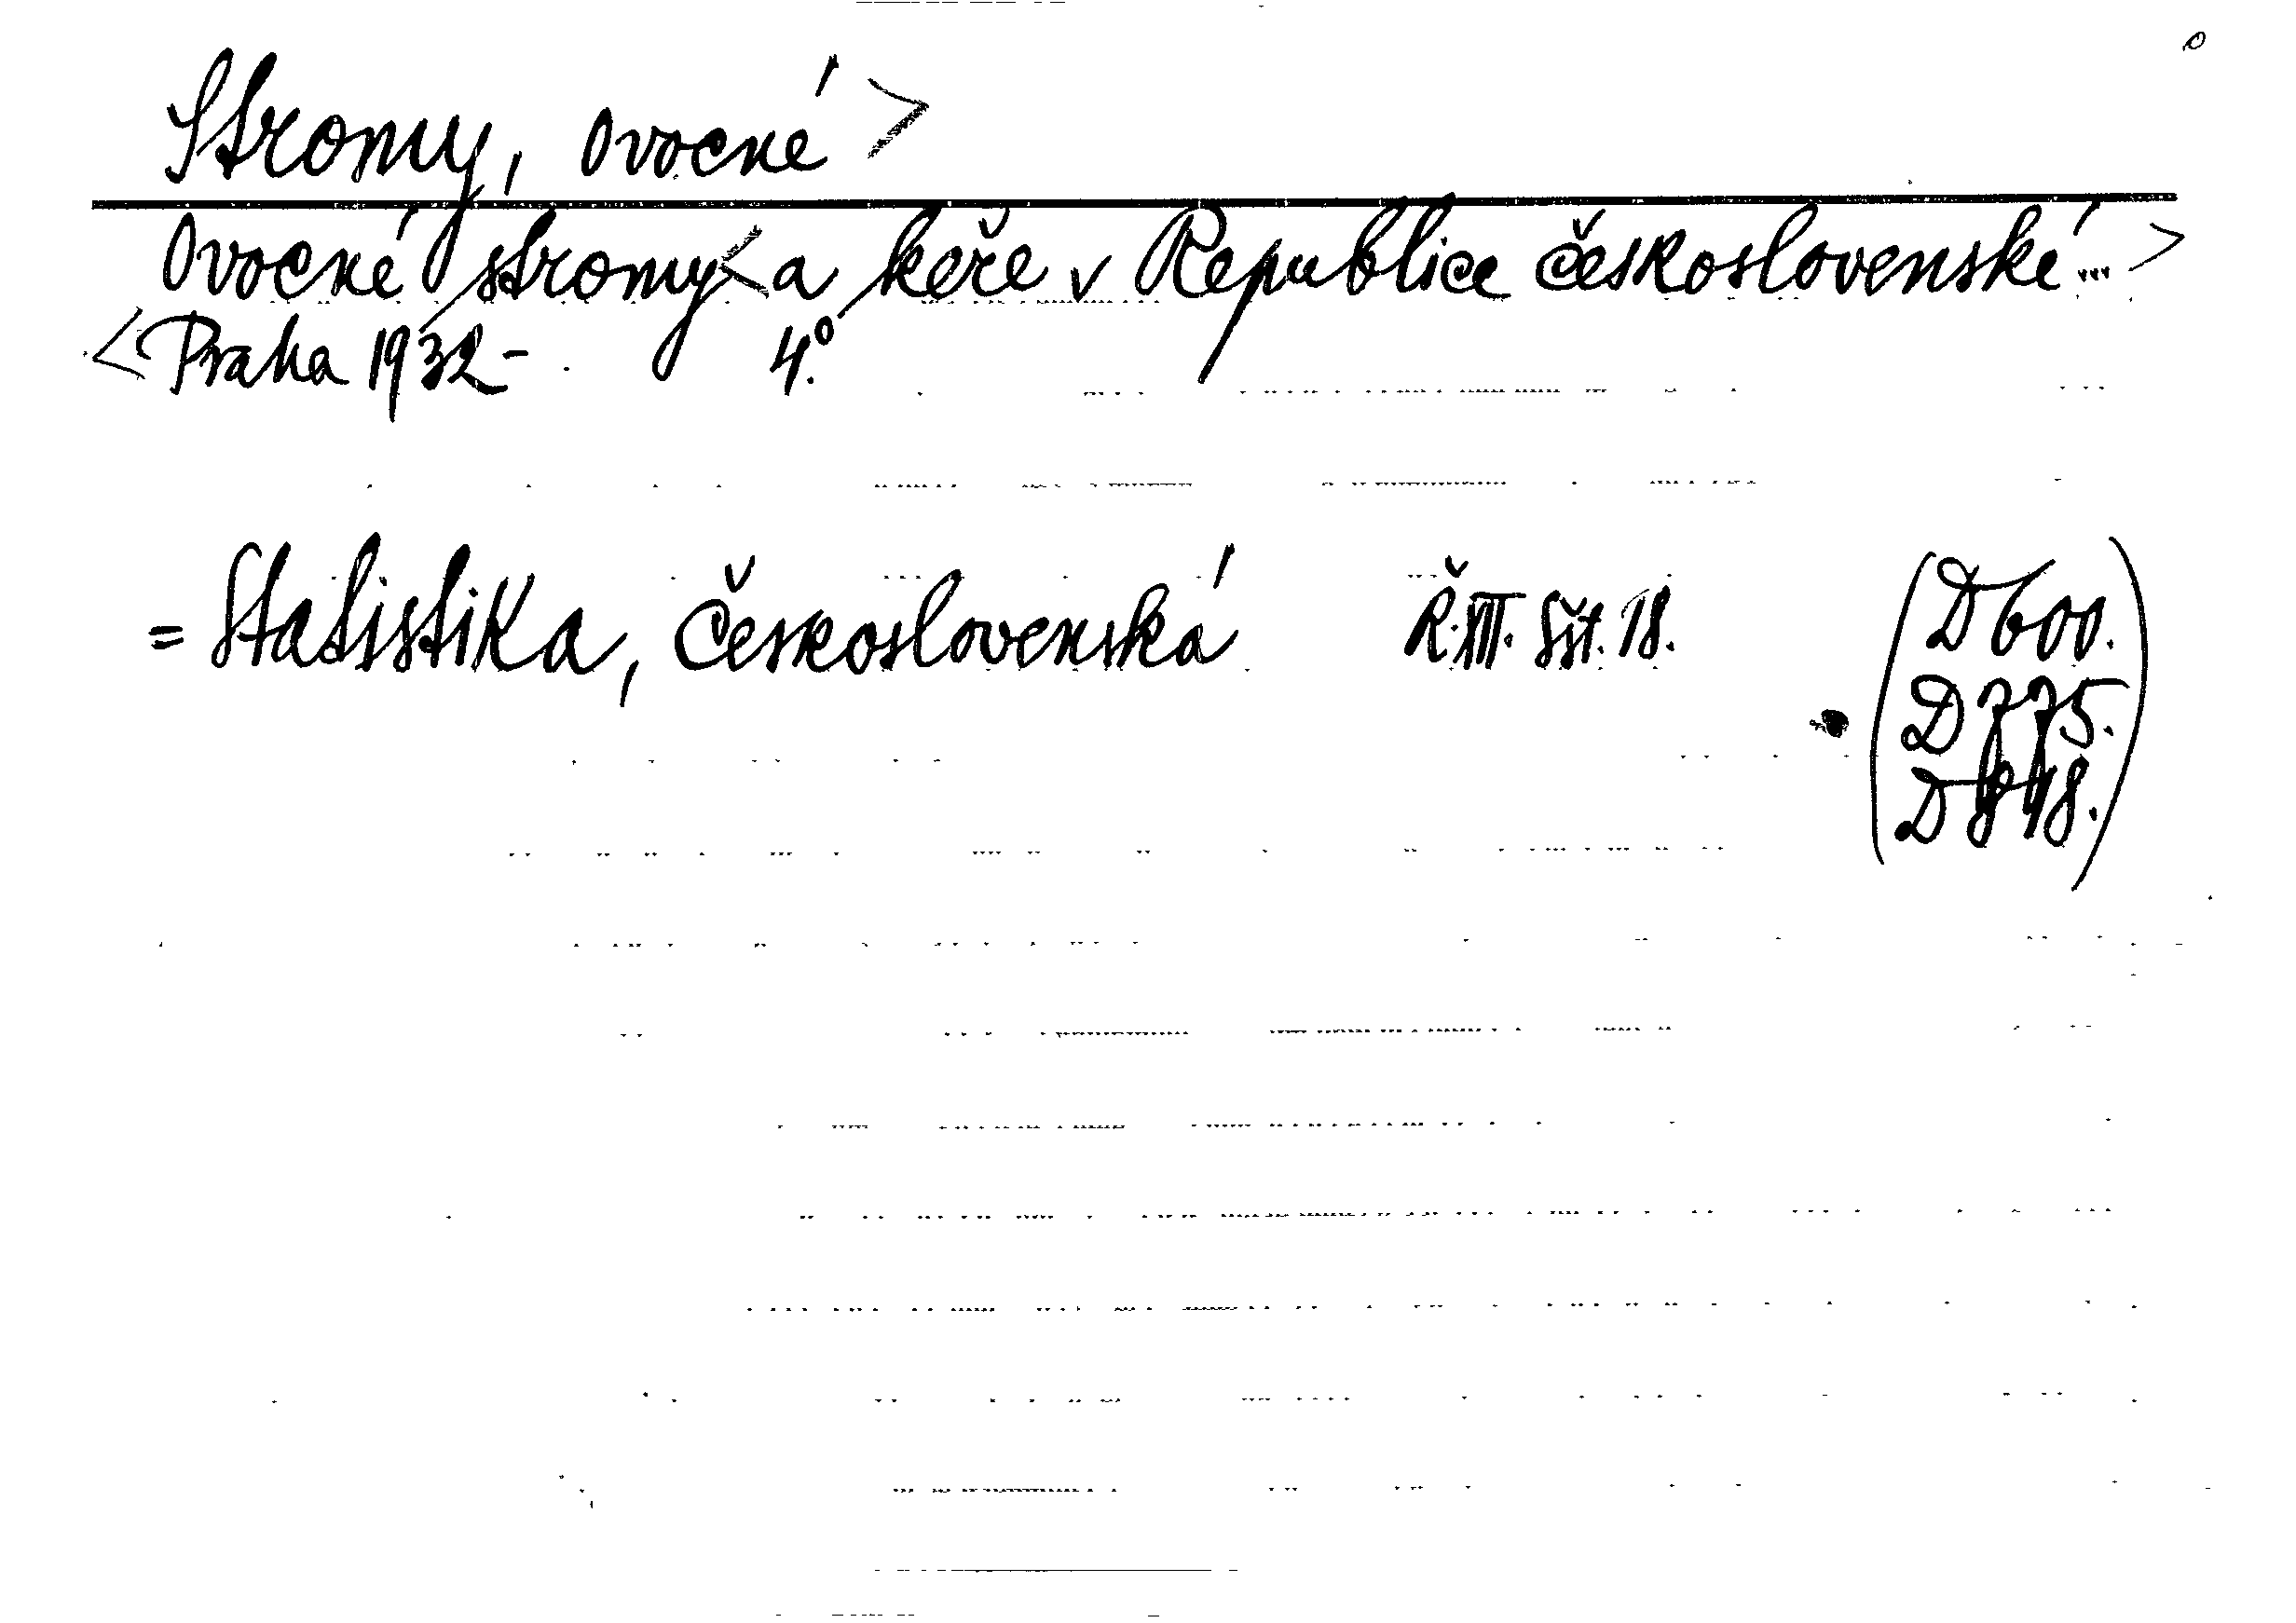 Stromy, ovocné >
Ovocné stromy < a keře v Republice československé ... >
< Praha 1932- 4°.
= Statistika, Československá Ř. XII. Sšt. 18. (D 600.
D 775.
D 848.)